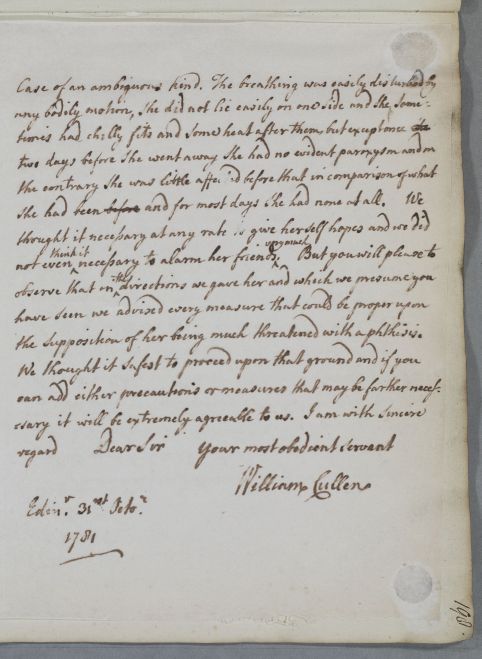 Case of an ambiguous kind. The breathing was easily disturbed by
any bodily motion, She did not lie easily on one side and She some-
times had chilly fits and some heat after them, but except once
two days before She went away She had no evident paroxysm and on
the contrary She was little affec'd before that in comparison of what
She had been before and for most days She had none at all. We
thought it necessary at any rate to give herself hopes and we did
not even think it necessary to alarm her friends very much. But you will please to
observe that in the directions we gave her and which we presume you
have seen we advised every measure that could be proper upon
the supposition of her being much threatened with a phthisis.
We thought it safest to proceed upon that ground and if you
can add either precautions or measures that may be farther neces-
sary it will be extremely agreeable to us. I am with sincere
regard Dear Sir Your most obedient servant
William Cullen
Edinr. 31st Octor.
1781
198